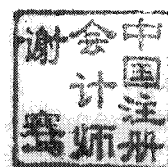 中国注册
会计师
谢骞